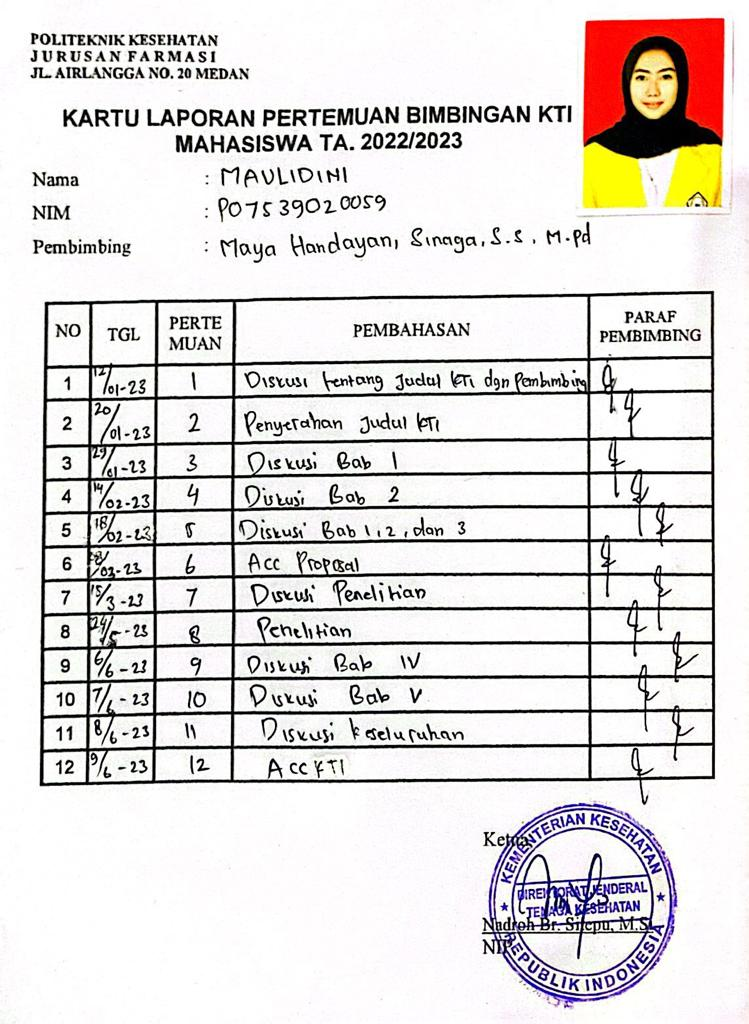 POLITEKNIK KESEHATAN
JURUSAN FARMASI
JL. AIRLANGGA NO. 20 MEDAN
KARTU LAPORAN PERTEMUAN BIMBINGAN KTI
MAHASISWA TA. 2022/2023
Nama : MAULIDINI
NIM : P07539020059
Pembimbing : Maya Handayani, Sinaga, S.S, M.Pd
NO TGL PERTE MUAN PEMBAHASAN PARAF PEMBIMBING
1 12/01-23 1 Diskusi tentang Judul KTI dgn Pembimbing
2 20/01-23 2 Penyerahan Judul KTI
3 29/01-23 3 Diskusi Bab 1
4 14/02-23 4 Diskusi Bab 2
5 18/02-23 5 Diskusi Bab 1, 2, dan 3
6 /03-23 6 Acc Proposal
7 15/3-23 7 Diskusi Penelitian
8 24/5-23 8 Penelitian
9 6/6-23 9 Diskusi Bab IV
10 7/6-23 10 Diskusi Bab V
11 8/6-23 11 Diskusi keseluruhan
12 9/6-23 12 Acc KTI
Ketua
KEMENTERIAN KESEHATAN
DIREKTORAT JENDERAL
TENAGA KESEHATAN
Nadroh Br. Sitepu, M.Si
NIP
REPUBLIK INDONESIA